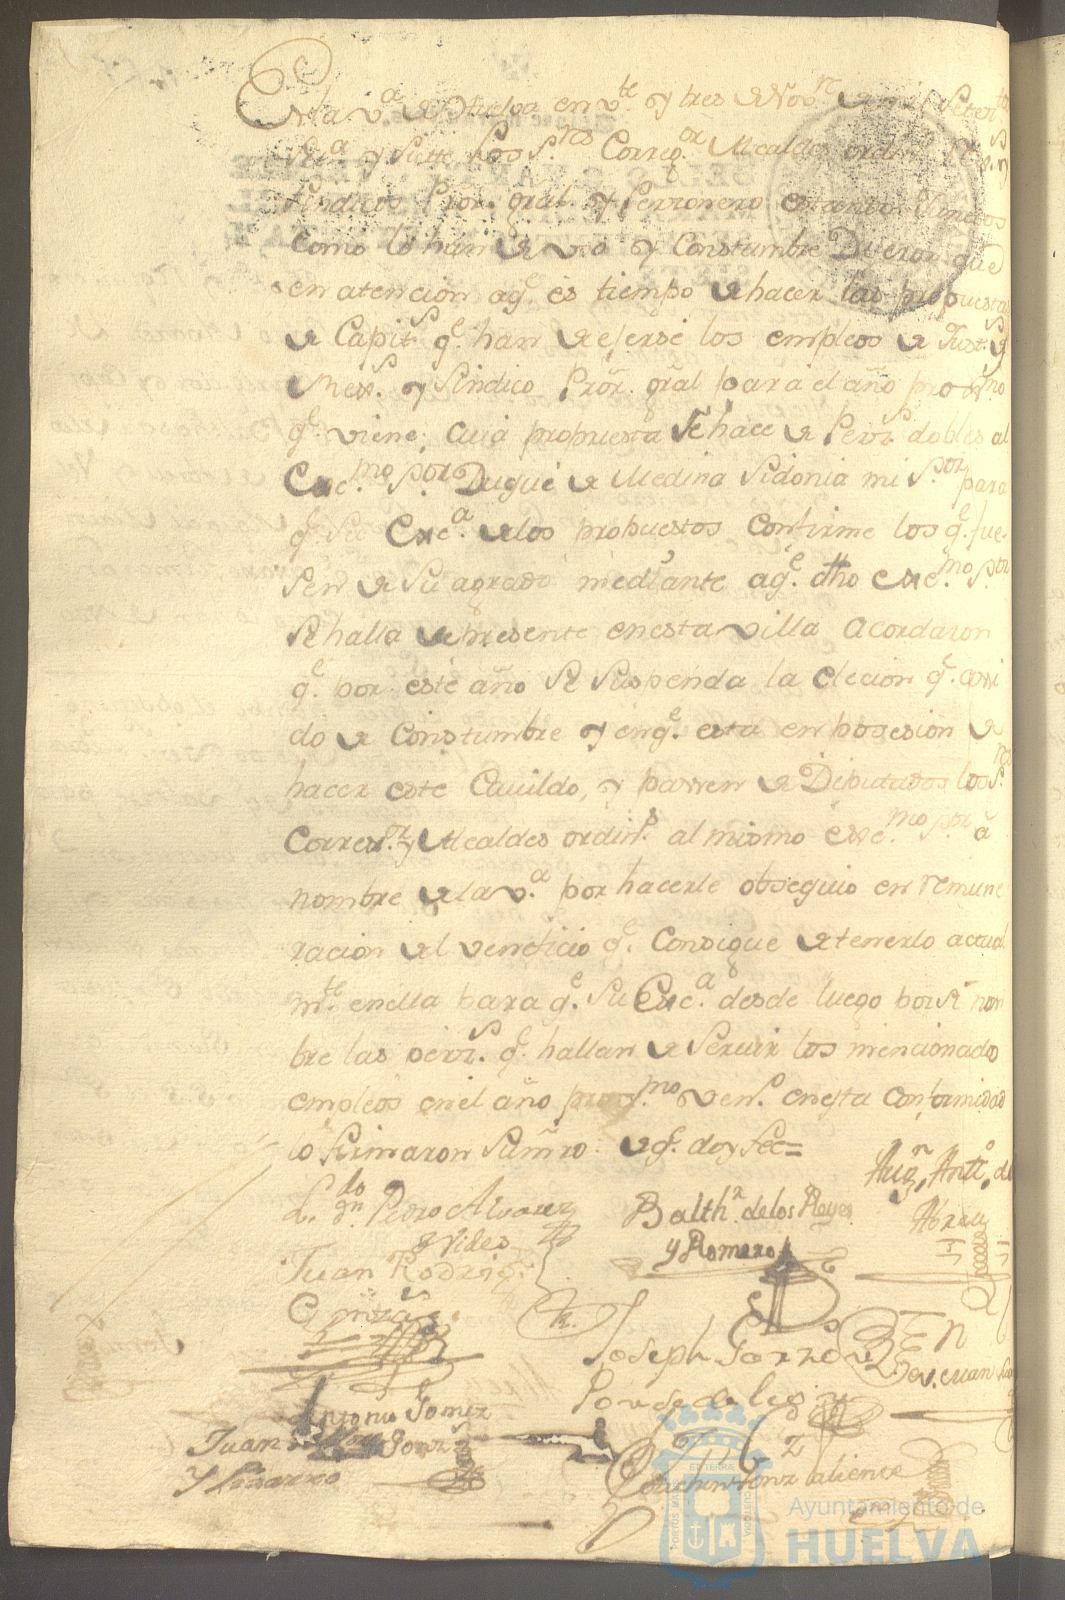 En la v.ª de Huelva en v.te y tres de Nov.re de mil Setez.tos
y Siette los S.res Correg.or Alcaldes ordin.s
Sindicos Pror. gral. y Perzonero estando
como lo han de uso y Constumbre Dijeron que
en atencion aq.e es tiempo de hacer las propuestas
de Capit.s q.e han de ejerse los empleos de Just.s y
y Sindico Pror. gral para el año prox.mo
q.e viene, cuia propuesta se hace de Pers.s dobles al
Exc.mo S.or Duque de Medina Sidonia mi S.or para
q.e Su Exc.a de los propuestos confirme los q.e fue-
sen de su agrado mediante aq.e dho exc.mo S.or
se halla de presente en esta villa Acordaron
q.e por este año se suspenda la elecion q.e asi
do de Constumbre y en q.e esta en posesion de
hacer este Cauildo, y pasen de Diputados los S.res
Corre.or y Alcaldes ordin.s al mismo exc.mo S.or a
nombre de la v.a por hacerle obsequio en remune
racion del veneficio q.e Consigue de tenerlo actual
m.te en ella para q.e Su Exc.a desde luego por si nom
bre las pers.s q.e hallan de Seruir los mencionado
empleos en el año prox.mo ven.o en esta conformidad
lo firmaron Sam.ro de q.e doy fee=
L.do d.n Pedro Alvarez
de Vides
Balth.r de los Reyes
y Romero
Aug.n Ant.o de
Abreu
Juan Rodrig.z
Joseph Garzon
Ponse de leon
Antonio Gomez
Juan Gonz.z
y Pizarro
Ayuntamiento de
HUELVA
PORTUS MARIS ET TERRAE CUSTODIA